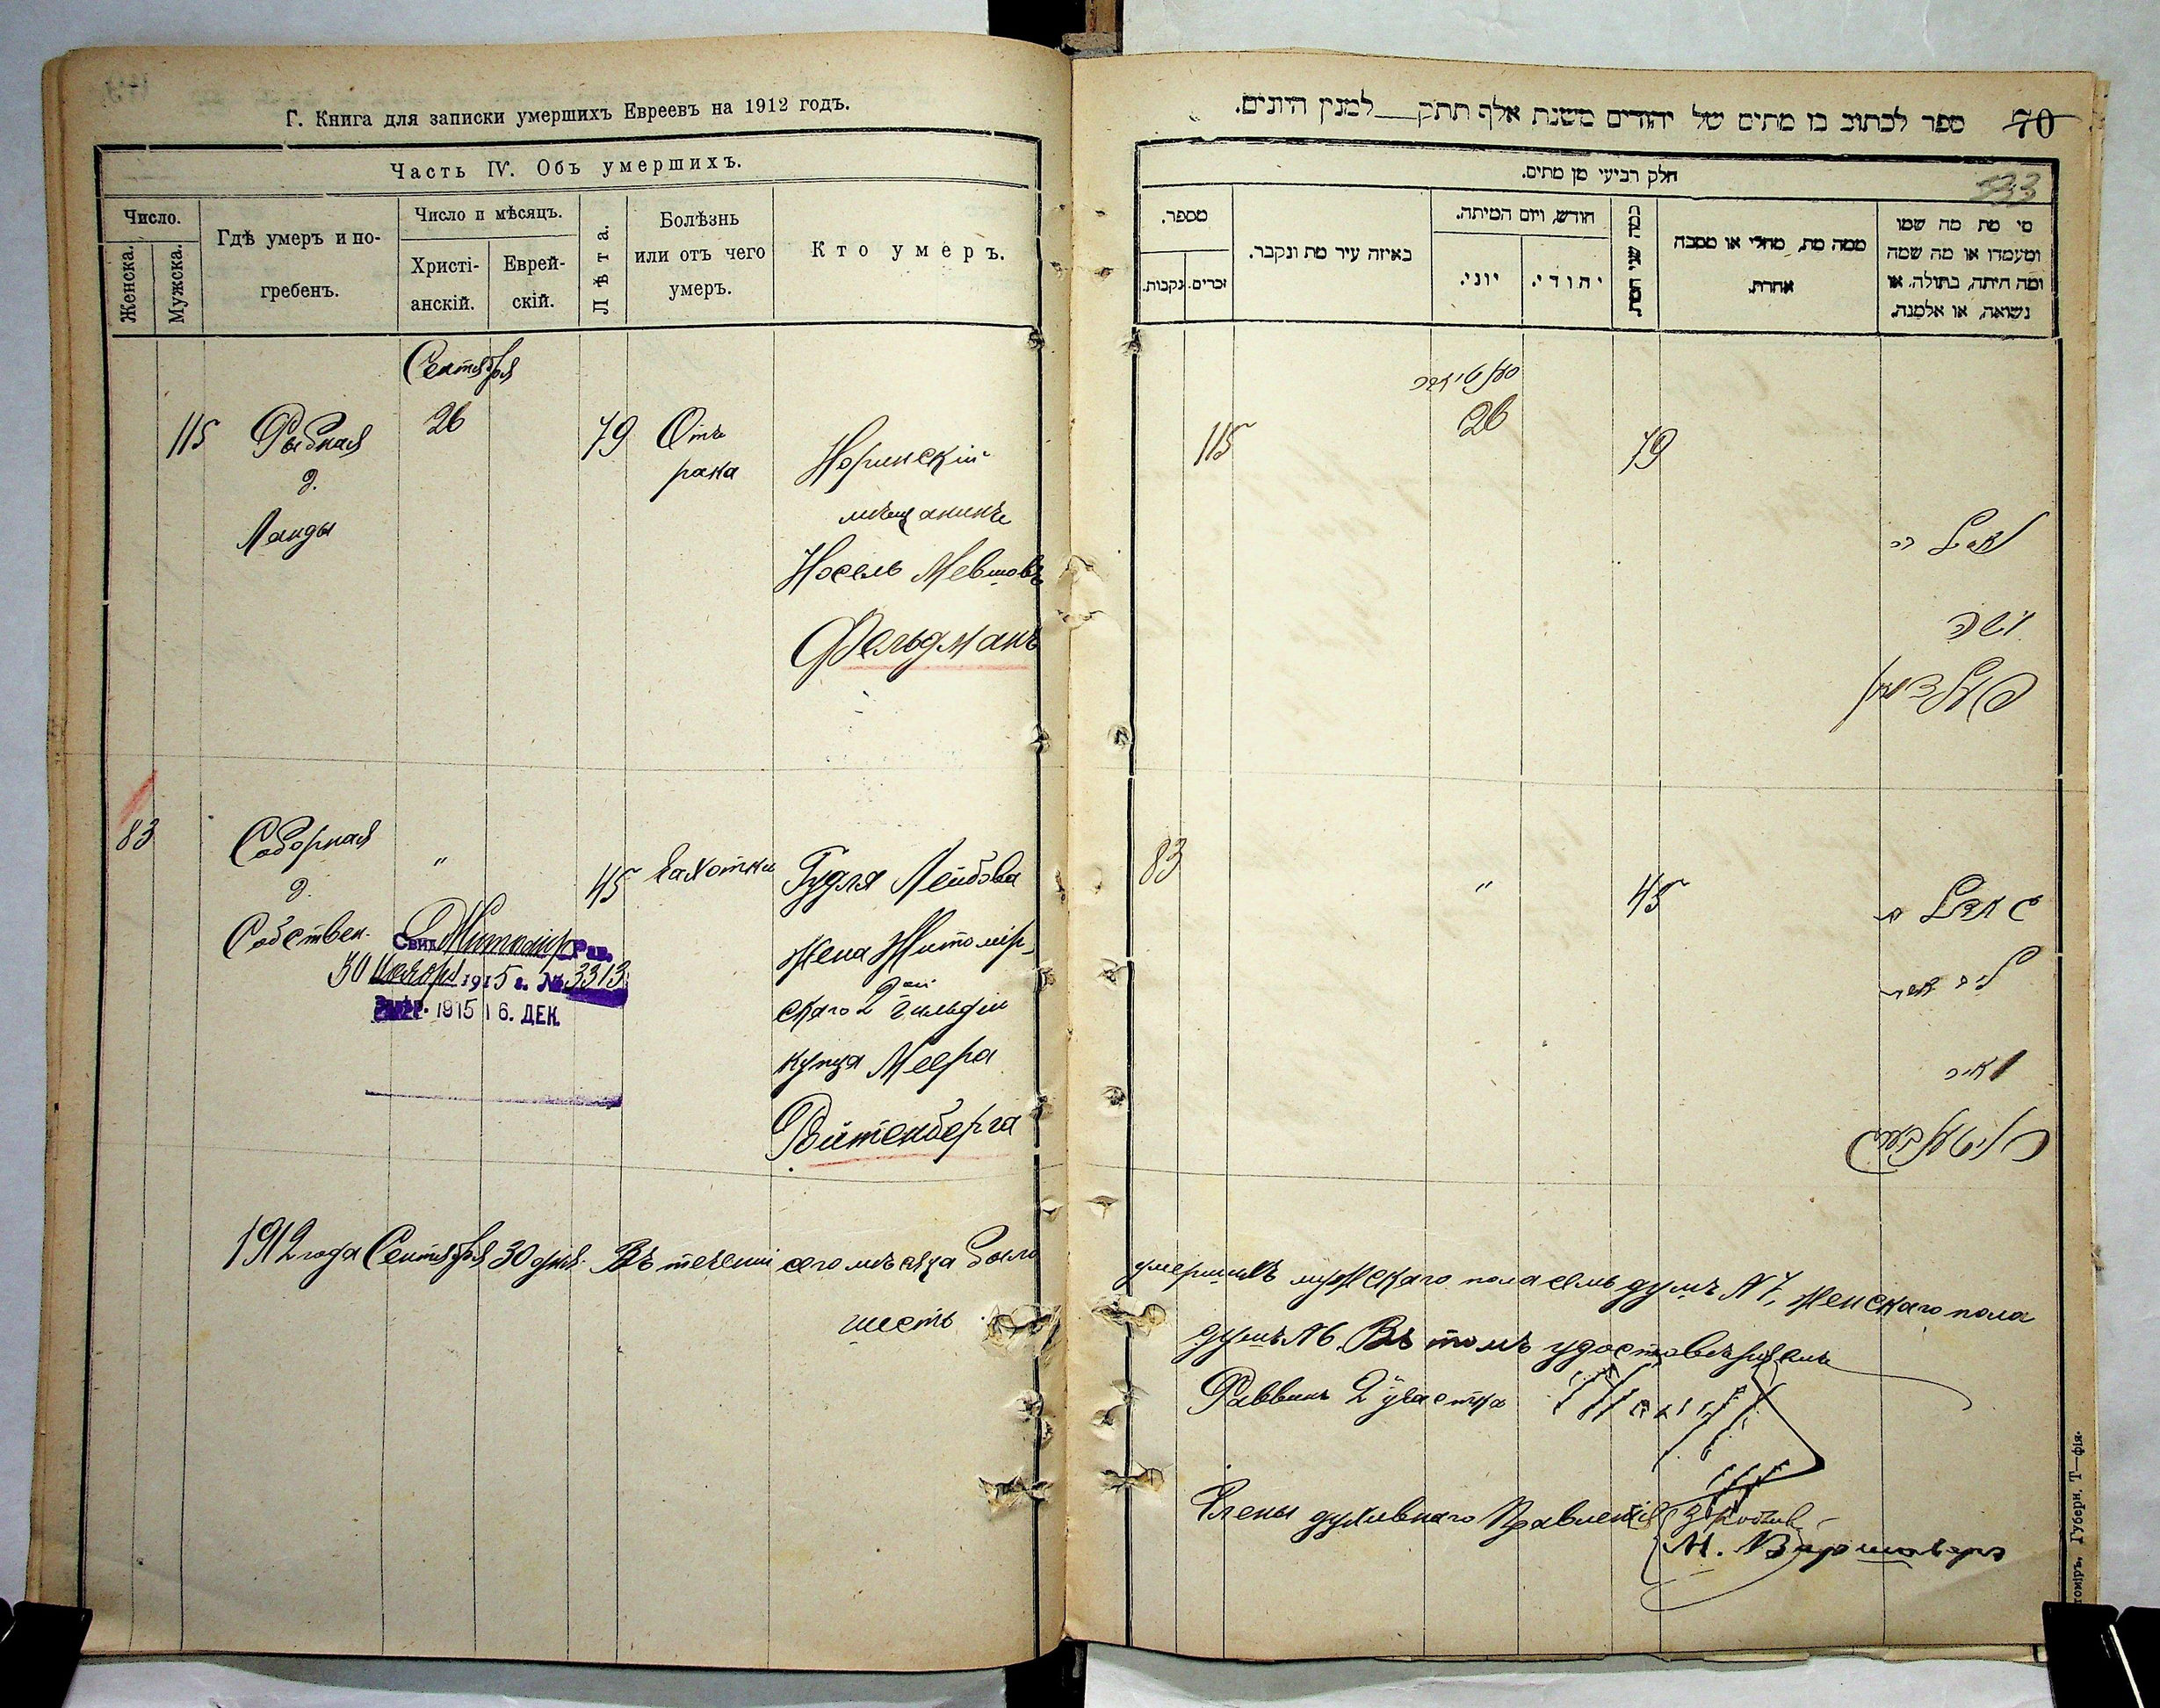 Г. Книга для записки умершихъ Евреевъ на 1912 годъ.
Часть IV. Объ умершихъ.
Число.
Женска.
Мужска.
Гдѣ умеръ и по-
гребенъ.
Число и мѣсяцъ.
Христі-
анскій.
Еврей-
скій.
Лѣта.
Болѣзнь
или отъ чего
умеръ.
Кто умеръ.
Сентября
115
Рыбная
д.
Ланды
26
79
Отъ
рака
Норинскій
мѣщанинъ
Іосель Мевшовъ
Фельдманъ
83
Соборная
д.
Собствен.
"
45
Чахотки
Гудля Лейбова
жена Житомір-
скаго 2ой гильдіи
купца Меера
Витенберга
Свид. Житомір. Рав.
30 Ноября 1915 г. № 3313
1915 16. ДЕК.
1912 года Сентября 30 дня. Въ теченіи сего мѣсяца было
шесть
70 ספר לכתוב בו מתים של יהודים משנת אלף תתק למנין היונים.
חלק רביעי מן מתים.
533
מי מת מה שמו
ומעמדו או מה שמה
ומה חיתה, בתולה, או
נשואה, או אלמנה.
ממה מת, מחלי או מסבה
אחרת.
כמה שני המת
חודש, ויום המיתה.
יהודי.
יוני.
באיזה עיר מת ונקבר.
מספר.
זכרים.
נקבות.
115
26
79
פעלדמאן
83
"
45
умершихъ мужскаго пола семь душъ №7, женскаго пола
душъ №6. Въ томъ удостовѣряемъ
Раввинъ 2 участка
Члены духовнаго Правленія
М. Варшаверъ
томіръ, Губерн. Т—фія.